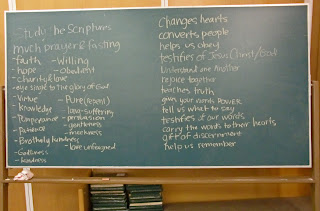 Study the Scriptures
much prayer & fasting
-faith -Willing
-hope -Obedient
-Charity & love
-eye single to the glory of God
-Virtue -Pure
-Knowledge -long-suffering
-Temperance -persuasion
-Patience -gentleness
-Brotherly kindness -meekness
-Godliness -love unfeigned
-kindness
Changes hearts
converts people
helps us obey
testifies of Jesus Christ/God
Understand one Another
rejoice together
teaches truth
given your words POWER
tell us what to say
testifies of our words
carry the words to their hearts
gift of discernment
help us remember